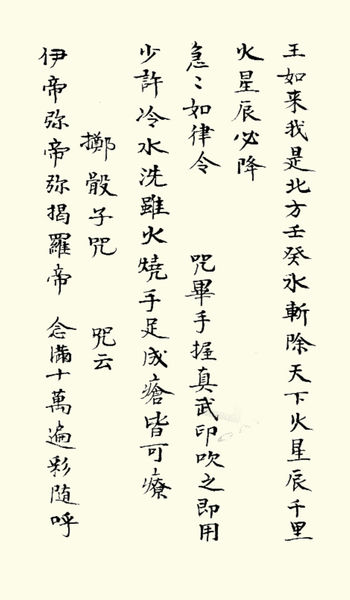 王如来我是北方壬癸水斬除天下火星辰千里
火星辰必降
急〻如律令　咒畢手握真武印吹之即用
少許冷水洗雖火燒手足成瘡皆可療
擲骰子咒　咒云
伊帝弥帝弥揭羅帝　念满十萬遍彩随呼